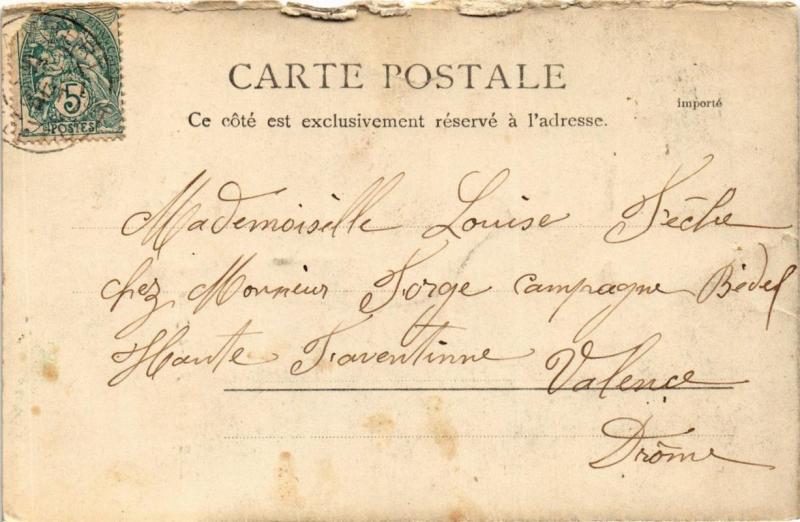 5
POSTES
CARTE POSTALE
importé
Ce côté est exclusivement réservé à l'adresse.
Mademoiselle Louise Fèche
chez Monsieur Forge Campagne Bédel
Haute Faventinne Valence
Drôme